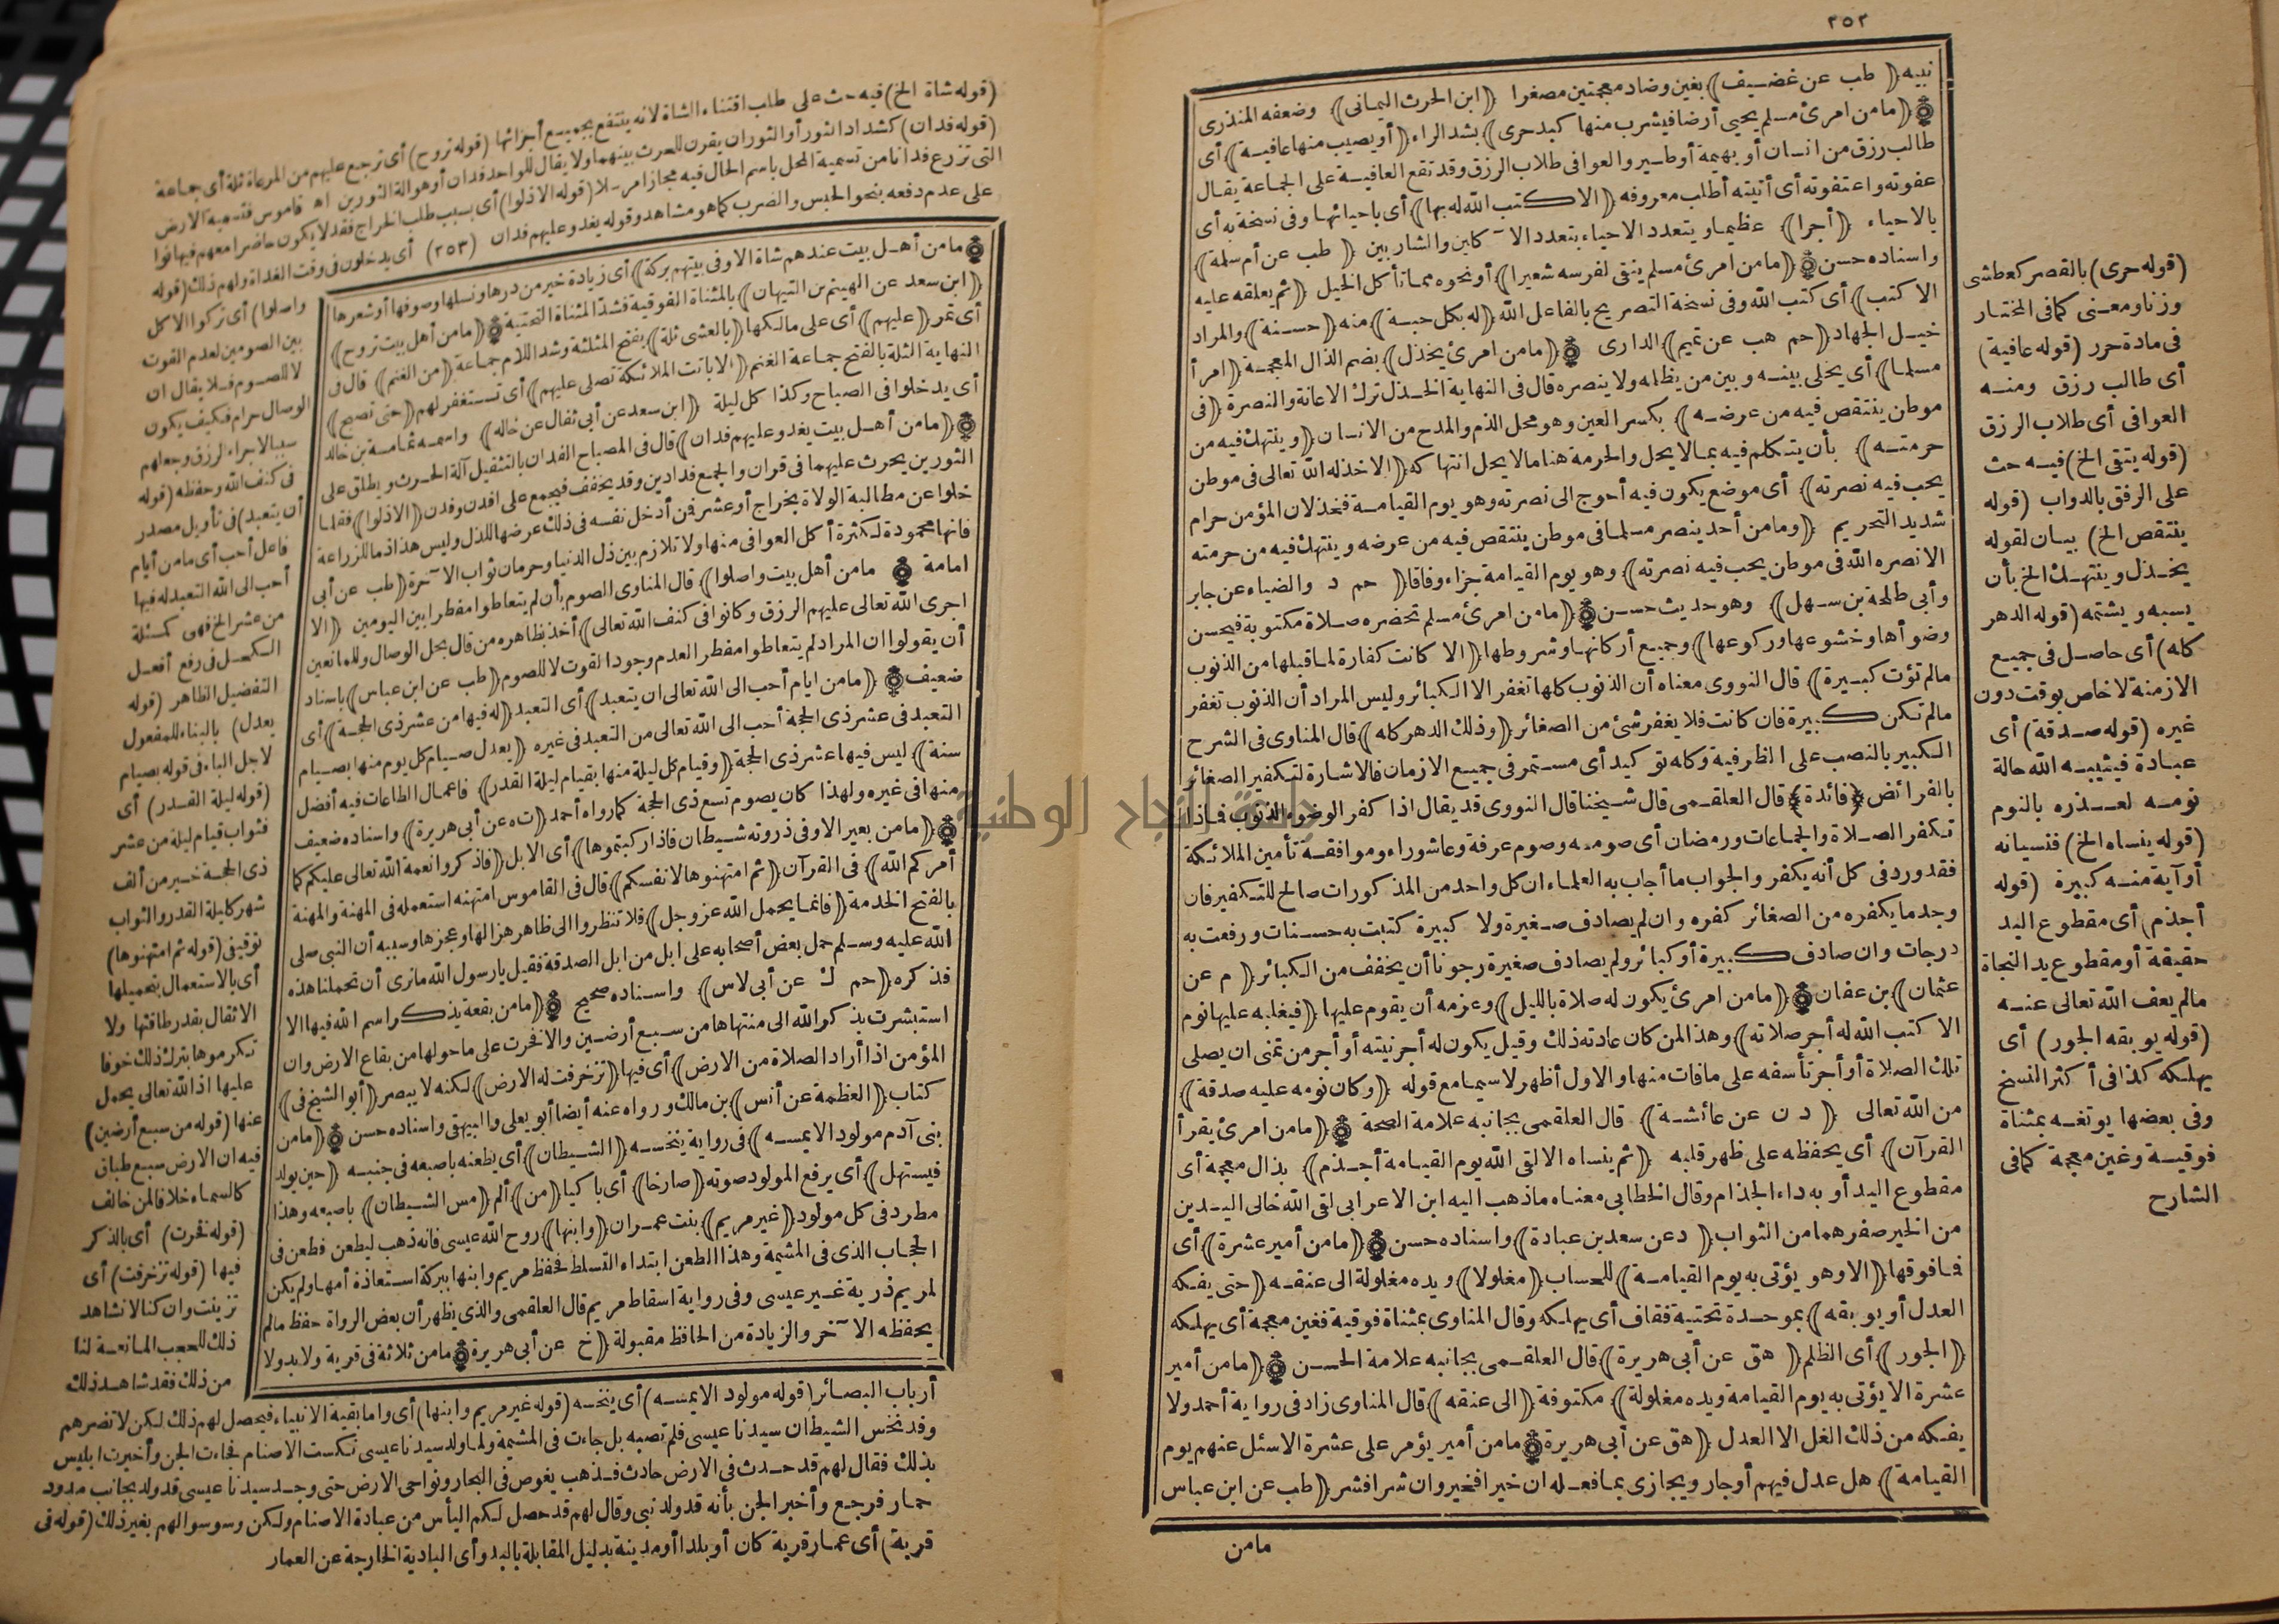 ٣٥٢
نبيه ﴿ طب عن غضيف﴾ بغين وضاد معجمتين مصغرا ﴿ابن الحرث اليمانى﴾ وضعفه المنذرى
﴿مامن امرئ مسلم يحيى أرضا فيشرب منها كبد حرى﴾ بشد الراء ﴿أو يصيب منها عافية﴾ أى
طالب رزق من انسان أو بهيمة أو طير والعوافى طلاب الرزق وقد تقع العافية على الجماعة يقال
عفوته واعتفوته أى أتيته أطلب معروفه ﴿الا كتب الله له بها﴾ أى باحيائها وفى نسخة به أى
بالاحياء ﴿أجرا﴾ عظيما ويتعدد الاحياء بتعدد الآكلين والشاربين ﴿ طب عن أم سلمة﴾
واسناده حسن ﴿مامن امرئ مسلم ينقى لفرسه شعيرا﴾ أو نحوه مما تأكل الخيل ﴿ثم يعلقه عليه
الا كتب﴾ أى كتب الله وفى نسخة التصريح بالفاعل الله ﴿له بكل حبة﴾ منه ﴿حسنة﴾ والمراد
خيل الجهاد ﴿حم هب عن تميم﴾ الدارى ﴿مامن امرئ يخذل﴾ بضم الذال المعجمة ﴿امرأ
مسلما﴾ أى يخلى بينه وبين من يظلمه ولا ينصره قال فى النهاية الخذل ترك الاعانة والنصرة ﴿فى
موطن ينتقص فيه من عرضه﴾ بكسر العين وهو محل الذم والمدح من الانسان ﴿وينتهك فيه من
حرمته﴾ بأن يتكلم فيه بمالا يحل والحرمة هنا مالا يحل انتهاكه ﴿الا خذله الله تعالى فى موطن
يحب فيه نصرته﴾ أى موضع يكون فيه أحوج الى نصرته وهو يوم القيامة فخذلان المؤمن حرام
شديد التحريم ﴿ومامن أحد ينصر مسلما فى موطن ينتقص فيه من عرضه وينتهك فيه من حرمته
الا نصره الله فى موطن يحب فيه نصرته﴾ وهو يوم القيامة جزاء وفاقا ﴿ حم د والضياء عن جابر
وأبى طلحة بن سهل﴾ وهو حديث حسن ﴿مامن امرئ مسلم تحضره صلاة مكتوبة فيحسن
وضوأها وخشوعها وركوعها﴾ وجميع أركانها وشروطها ﴿الا كانت كفارة لما قبلها من الذنوب
مالم تؤت كبيرة﴾ قال النووى معناه أن الذنوب كلها تغفر الا الكبائر وليس المراد أن الذنوب تغفر
مالم تكن كبيرة فان كانت فلا يغفر شئ من الصغائر ﴿وذلك الدهر كله﴾ قال المناوى فى الشرح
الكبير بالنصب على الظرفية وكاه توكيد أى مستمر فى جميع الازمان فالاشارة لتكفير الصغائر
بالفرائض ﴿فائدة﴾ قال العلقمى قال شيخنا قال النووى قد يقال اذا كفر الوضوء الذنوب فماذا
تكفر الصلاة والجماعات ورمضان أى صومه وصوم عرفة وعاشوراء وموافقة تأمين الملائكة
فقد ورد فى كل أنه يكفر والجواب ما أجاب به العلماء ان كل واحد من المذكورات صالح للتكفير فان
وجد ما يكفره من الصغائر كفره وان لم يصادف صغيرة ولا كبيرة كتبت به حسنات ورفعت به
درجات وان صادف كبيرة أو كبائر ولم يصادف صغيرة رجونا أن يخفف من الكبائر ﴿ م عن
عثمان﴾ بن عفان ﴿مامن امرئ يكون له صلاة بالليل﴾ وعزمه أن يقوم عليها ﴿فيغلبه عليها نوم
الا كتب الله له أجر صلاته﴾ وهذا لمن كان عادته ذلك وقيل يكون له أجر نيته أو أجر من تمنى ان يصلى
تلك الصلاة أو أجر تأسفه على مافات منها والاول أظهر لاسيما مع قوله ﴿وكان نومه عليه صدقة﴾
من الله تعالى ﴿ د ن عن عائشة﴾ قال العلقمى بجانبه علامة الصحة ﴿مامن امرئ يقرأ
القرآن﴾ أى يحفظه على ظهر قلبه ﴿ثم ينساه الا لقى الله يوم القيامة أجذم﴾ بذال معجمة أى
مقطوع اليد أو به داء الجذام وقال الخطابى معناه ماذهب اليه ابن الاعرابى لقى الله خالى اليدين
من الخير صفرهما من الثواب ﴿ د عن سعد بن عبادة﴾ واسناده حسن ﴿مامن أمير عشرة﴾ أى
فما فوقها ﴿الا وهو يؤتى به يوم القيامة﴾ للحساب ﴿مغلولا﴾ ويده مغلولة الى عنقه ﴿حتى يفكه
العدل أو يوبقه﴾ بموحدة تحتية فقاف أى يهلكه وقال المناوى بمثناة فوقية فغين معجمة أى يهلكه
﴿الجور﴾ أى الظلم ﴿ هق عن أبى هريرة﴾ قال العلقمى بجانبه علامة الحسن ﴿مامن أمير
عشرة الا يؤتى به يوم القيامة ويده مغلولة﴾ مكتوفة ﴿الى عنقه﴾ قال المناوى زاد فى رواية أحمد ولا
يفكه من ذلك الغل الا العدل ﴿هق عن أبى هريرة مامن أمير يؤمر على عشرة الا سئل عنهم يوم
القيامة﴾ هل عدل فيهم أو جار ويجازى بما فعله ان خيرا فخير وان شرا فشر ﴿طب عن ابن عباس
مامن
(قوله حرى) بالقصر كعطشى
وزنا ومعنى كما فى المختار
فى مادة حرر (قوله عافية)
أى طالب رزق ومنه
العوافى أى طلاب الرزق
(قوله ينقى الخ) فيه حث
على الرفق بالدواب (قوله
ينتقص الخ) بيان لقوله
يخذل وينتهك الخ بأن
يسبه ويشتمه (قوله الدهر
كله) أى حاصل فى جميع
الازمنة لا خاص بوقت دون
غيره (قوله صدقة) أى
عبادة فيثيبه الله حالة
نومه لعذره بالنوم
(قوله ينساه الخ) فنسيانه
أو آية منه كبيرة (قوله
أجذم) أى مقطوع اليد
حقيقة أو مقطوع يد النجاة
مالم يعف الله تعالى عنه
(قوله يوبقه الجور) أى
يهلكه كذا فى أكثر النسخ
وفى بعضها يوتغه بمثناة
فوقية وغين معجمة كما فى
الشارح
(قوله شاة الخ) فيه حث على طلب اقتناء الشاة لانه ينتفع بجميع أجزائها (قوله تروح) أى ترجع عليهم من المرعاة ثلة أى جماعة
(قوله فدان) كشداد الثور أو الثوران يقرن للحرث بينهما ولا يقال للواحد فدان أو هو آلة الثورين اه قاموس فتسمية الارض
التى تزرع فدانا من تسمية المحل باسم الحال فيه مجازا مرسلا (قوله الا ذلوا) أى بسبب طلب الخراج فقد لا يكون حاضرا معهم فيهانوا
على عدم دفعه بنحو الحبس والضرب كما هو مشاهد وقوله يغدو عليهم فدان (٣٥٣) أى يدخلون فى وقت الغداة ولهم ذلك (قوله
مامن أهل بيت عندهم شاة الا وفى بيتهم بركة﴾ أى زيادة خير من درها ونسلها وصوفها أو شعرها
﴿ابن سعد عن الهيثم بن التيهان﴾ بالمثناة الفوقية فشد المثناة التحتية ﴿مامن أهل بيت تروح﴾
أى تمر ﴿عليهم﴾ أى على مالكها ﴿بالعشى ثلة﴾ بفتح المثلثة وشد اللام جماعة ﴿من الغنم﴾ قال فى
النهاية الثلة بالفتح جماعة الغنم ﴿الا باتت الملائكة تصلى عليهم﴾ أى تستغفر لهم ﴿حتى تصبح﴾
أى يدخلوا فى الصباح وكذا كل ليلة ﴿ابن سعد عن أبى ثفال عن خاله﴾ واسمه ثمامة بن خالد
﴿مامن أهل بيت يغدو عليهم فدان﴾ قال فى المصباح الفدان بالتثقيل آلة الحرث ويطلق على
الثورين يحرث عليهما فى قران والجمع فدادين وقد يخفف فيجمع على افدن وفدن ﴿الا ذلوا﴾ فقلما
خلوا عن مطالبة الولاة بخراج أو عشر فمن أدخل نفسه فى ذلك عرضها للذل وليس هذا ذما للزراعة
فانها محمودة لكثرة أكل العوافى منها ولا تلازم بين ذل الدنيا وحرمان ثواب الآخرة ﴿طب عن أبى
امامة مامن أهل بيت واصلوا﴾ قال المناوى الصوم بأن لم يتعاطوا مفطرا بين اليومين ﴿الا
اجرى الله تعالى عليهم الرزق وكانوا فى كنف الله تعالى﴾ أخذ بظاهره من قال بحل الوصال وللمانعين
أن يقولوا ان المراد لم يتعاطوا مفطر العدم وجود القوت لا للصوم ﴿طب عن ابن عباس﴾ باسناد
ضعيف ﴿مامن ايام أحب الى الله تعالى ان يتعبد﴾ أى التعبد ﴿له فيها من عشر ذى الحجة﴾ أى
التعبد فى عشر ذى الحجة أحب الى الله تعالى من التعبد فى غيره ﴿يعدل صيام كل يوم منها بصيام
سنة﴾ ليس فيها عشر ذى الحجة ﴿وقيام كل ليلة منها بقيام ليلة القدر﴾ فاعمال الطاعات فيه أفضل
منها فى غيره ولهذا كان يصوم تسع ذى الحجة كما رواه أحمد ﴿ت ه عن أبى هريرة﴾ واسناده ضعيف
﴿مامن بعير الا وفى ذروته شيطان فاذا ركبتموها﴾ أى الابل ﴿فاذكروا نعمة الله تعالى عليكم كما
أمركم الله﴾ فى القرآن ﴿ثم امتهنوها لانفسكم﴾ قال فى القاموس امتهنه استعمله فى المهنة والمهنة
بالفتح الخدمة ﴿فانما يحمل الله عز وجل﴾ فلا تنظروا الى ظاهر هزالها وعجزها وسببه أن النبى صلى
الله عليه وسلم حمل بعض أصحابه على ابل من ابل الصدقة فقيل يارسول الله مانرى أن تحملنا هذه
فذكره ﴿حم ك عن أبى لاس﴾ واسناده صحيح ﴿مامن بقعة يذكر اسم الله فيها الا
استبشرت بذكر الله الى منتهاها من سبع أرضين والا فخرت على ماحولها من بقاع الارض وان
المؤمن اذا أراد الصلاة من الارض﴾ أى فيها ﴿تزخرفت له الارض﴾ لكنه لا يبصر ﴿أبو الشيخ فى﴾
كتاب ﴿العظمة عن أنس﴾ بن مالك ورواه عنه أيضا أبو يعلى والبيهقى واسناده حسن ﴿مامن
بنى آدم مولود الا يمسه﴾ فى رواية ينخسه ﴿الشيطان﴾ أى يطعنه باصبعه فى جنبه ﴿حين يولد
فيستهل﴾ أى يرفع المولود صوته ﴿صارخا﴾ أى باكيا ﴿من﴾ ألم ﴿مس الشيطان﴾ باصبعه وهذا
مطرد فى كل مولود ﴿غير مريم﴾ بنت عمران ﴿وابنها﴾ روح الله عيسى فانه ذهب ليطعن فطعن فى
الحجاب الذى فى المشيمة وهذا الطعن ابتداء التسلط فحفظ مريم وابنها ببركة استعاذة أمها ولم يكن
لمريم ذرية غير عيسى وفى رواية اسقاط مريم قال العلقمى والذى يظهر أن بعض الرواة حفظ مالم
يحفظه الآخر والزيادة من الحافظ مقبولة ﴿خ عن أبى هريرة مامن ثلاثة فى قرية ولا بدو لا
واصلوا) أى تركوا الاكل
بين الصومين لعدم القوت
لا للصوم فلا يقال ان
الوصال حرام فكيف يكون
سببا لاجراء الرزق وجعلهم
فى كنف الله وحفظه (قوله
أن يتعبد) فى تأويل مصدر
فاعل أحب أى مامن أيام
أحب الى الله التعبد له فيها
من عشر الخ فهى كمسئلة
الكحل فى رفع أفعل
التفضيل الظاهر (قوله
يعدل) بالبناء للمفعول
لاجل الباء فى قوله بصيام
(قوله ليلة القدر) أى
فثواب قيام ليلة من عشر
ذى الحجة خير من ألف
شهر كليلة القدر والثواب
توقيفى (قوله ثم امتهنوها)
أى بالاستعمال بتحميلها
الاثقال بقدر طاقتها ولا
تكرموها بترك ذلك خوفا
عليها اذ الله تعالى يحمل
عنها (قوله من سبع أرضين)
فيه ان الارض سبع طباق
كالسماء خلافا لمن خالف
(قوله فخرت) أى بالذكر
فيها (قوله تزخرفت) أى
تزينت وان كنا لا نشاهد
ذلك للحجب المانعة لنا
من ذلك فقد شاهد ذلك
أرباب البصائر (قوله مولود الا يمسه) أى ينخسه (قوله غير مريم وابنها) أى واما بقية الانبياء فيحصل لهم ذلك لكن لا تضرهم
وقد نخس الشيطان سيدنا عيسى فلم تصبه بل جاءت فى المشيمة ولما ولد سيدنا عيسى نكست الاصنام فجاءت الجن وأخبرت ابليس
بذلك فقال لهم قد حدث فى الارض حادث فذهب يغوص فى البحار ونواحى الارض حتى وجد سيدنا عيسى قد ولد بجانب مدود
حمار فرجع وأخبر الجن بأنه قد ولد نبى وقال لهم قد حصل لكم اليأس من عبادة الاصنام ولكن وسوسوا لهم بغير ذلك (قوله فى
قرية) أى عمار قرية كان أو بلدا أو مدينة بدليل المقابلة بالبدو أى البادية الخارجة عن العمار
جامعة النجاح الوطنية